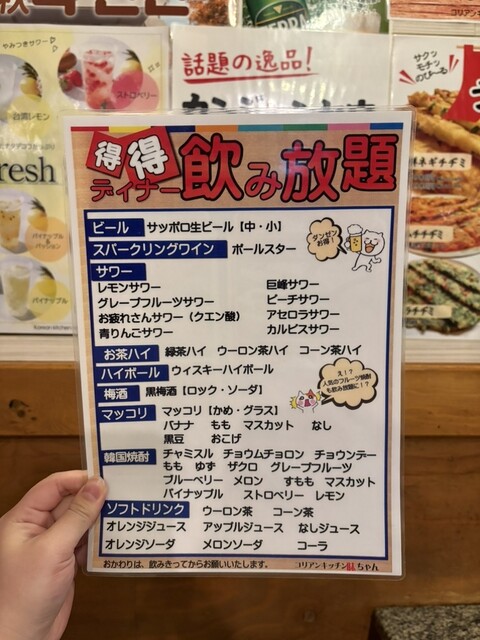 やみつきサワー
台湾レモン
ストロベリー
resh
パイナップル
&
パッション
パイナップル
話題の逸品!
サクッ
モチッ
のび〜る
ネギチヂミ
チヂミ
ラチヂミ
得得
ディナー飲み放題
ビール サッポロ生ビール【中・小】
スパークリングワイン ポールスター
ダンゼン
お得!
サワー
レモンサワー 巨峰サワー
グレープフルーツサワー ピーチサワー
お疲れさんサワー(クエン酸) アセロラサワー
青りんごサワー カルピスサワー
お茶ハイ 緑茶ハイ ウーロン茶ハイ コーン茶ハイ
ハイボール ウィスキーハイボール
え!?
人気のフルーツ焼酎
も飲み放題に!?
梅酒 黒梅酒【ロック・ソーダ】
マッコリ マッコリ【かめ・グラス】
バナナ もも マスカット なし
黒豆 おこげ
韓国焼酎 チャミスル チョウムチョロン チョウンデー
もも ゆず ザクロ グレープフルーツ
ブルーベリー メロン すもも マスカット
パイナップル ストロベリー レモン
ソフトドリンク ウーロン茶 コーン茶
オレンジジュース アップルジュース なしジュース
オレンジソーダ メロンソーダ コーラ
おかわりは、飲みきってからお願いいたします。 コリアンキッチン味ちゃん